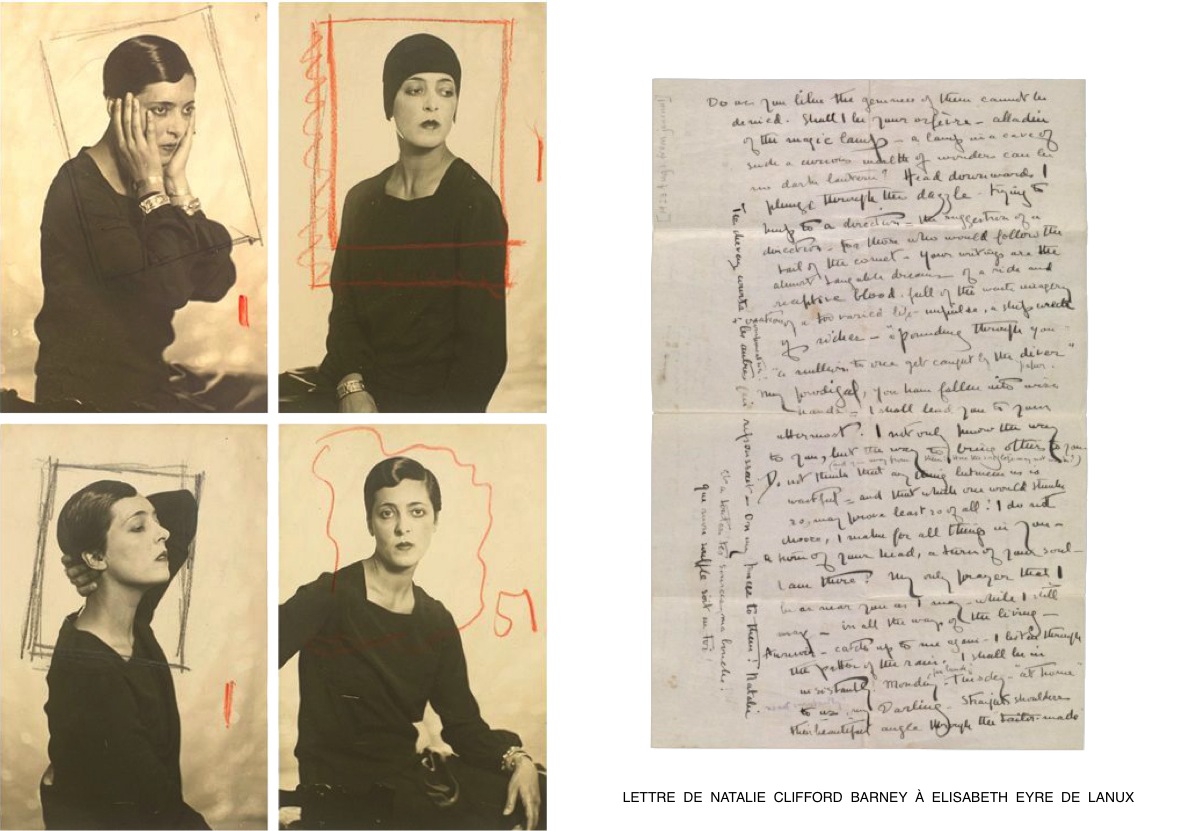 51
Do as you like the gemness of them cannot be
denied. Shall I be your orfèvre – alladin
of the magic lamp – a lamp in a cave of
such a curious wealth of wonders can be
no dark lantern? Head downwards I
plunge through the dazzle – trying to
keep to a direction – the suggestion of a
direction – for those who would follow the
tail of the comet – your writings are the
almost tangible dreams of a rich and
receptive blood, full of the
a too varied life impulse, a ship wreck
of riches – "pounding through you –
to once get caught by the diver"
My prodigal, you have fallen into wise
hands – I shall lead you to your
uttermost. I not only know the way
to you, but the way to bring others to you
Do not think that any thing between us is
wasteful – and that which one would think
so, may prove least so of all! I do not
choose, I wake for all things in you –
a turn of your head, a turn of your soul –
I am there! My only prayer that I
be as near you as I may – while I still
may – in all the ways of the living –
Answer – catch up to me again – I listen through
the patter of the rain. I shall be in
Monday – Tuesday – "at home"
to us, my Darling – Straight shoulders
their beautiful angle through the tailor-made
les autres repoussait – On my to them! Natalie
toutes tes sources, ma bouche!
que mon souffle soit en toi!
LETTRE DE NATALIE CLIFFORD BARNEY À ELISABETH EYRE DE LANUX